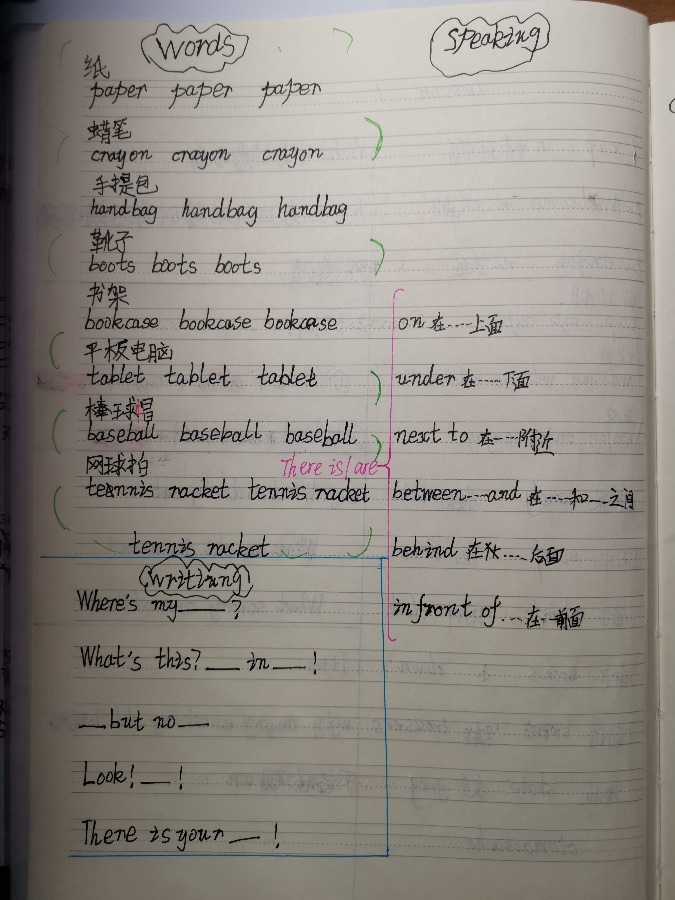 Words
纸
paper paper paper
蜡笔
crayon crayon crayon
手提包
handbag handbag handbag
靴子
boots boots boots
书架
bookcase bookcase bookcase
平板电脑
tablet tablet tablet
棒球冒
baseball baseball baseball
网球拍
tennis racket tennis racket
tennis racket
Speaking
There is/are
on 在……上面
under 在……下面
next to 在……附近
between……and 在……和……之间
behind 在……后面
in front of … 在…前面
Writing
Where's my ___ ?
What's this? ___ in ___ !
___ but no ___
Look! ___ !
There is your ___ !